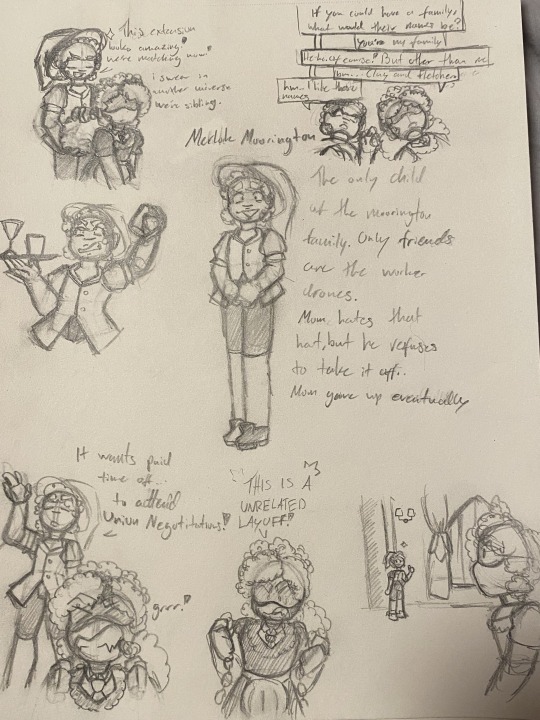 This extension
looks amazing!
we're matching now!
i swear in
another universe
we're sibling.
If you could have a family,
what would their names be?
You're my family
Hehe, of course! But other than me
hm... Clay and Fletcher
hm.. I like those
names
Moorington
The only child
of the moorington
family. Only friends
are the worker
drones.
Mom hates that
hat, but he refuses
to take it off..
Mom gave up eventually
It wants paid
time off...
to attend
Union Negotitations!
grrr!
THIS IS A
UNRELATED
LAYOFF!